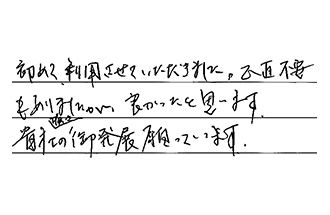 初めて利用させていただきました。正直不安
もありましたが、良かったと思います。
貴社の御発展願っています。